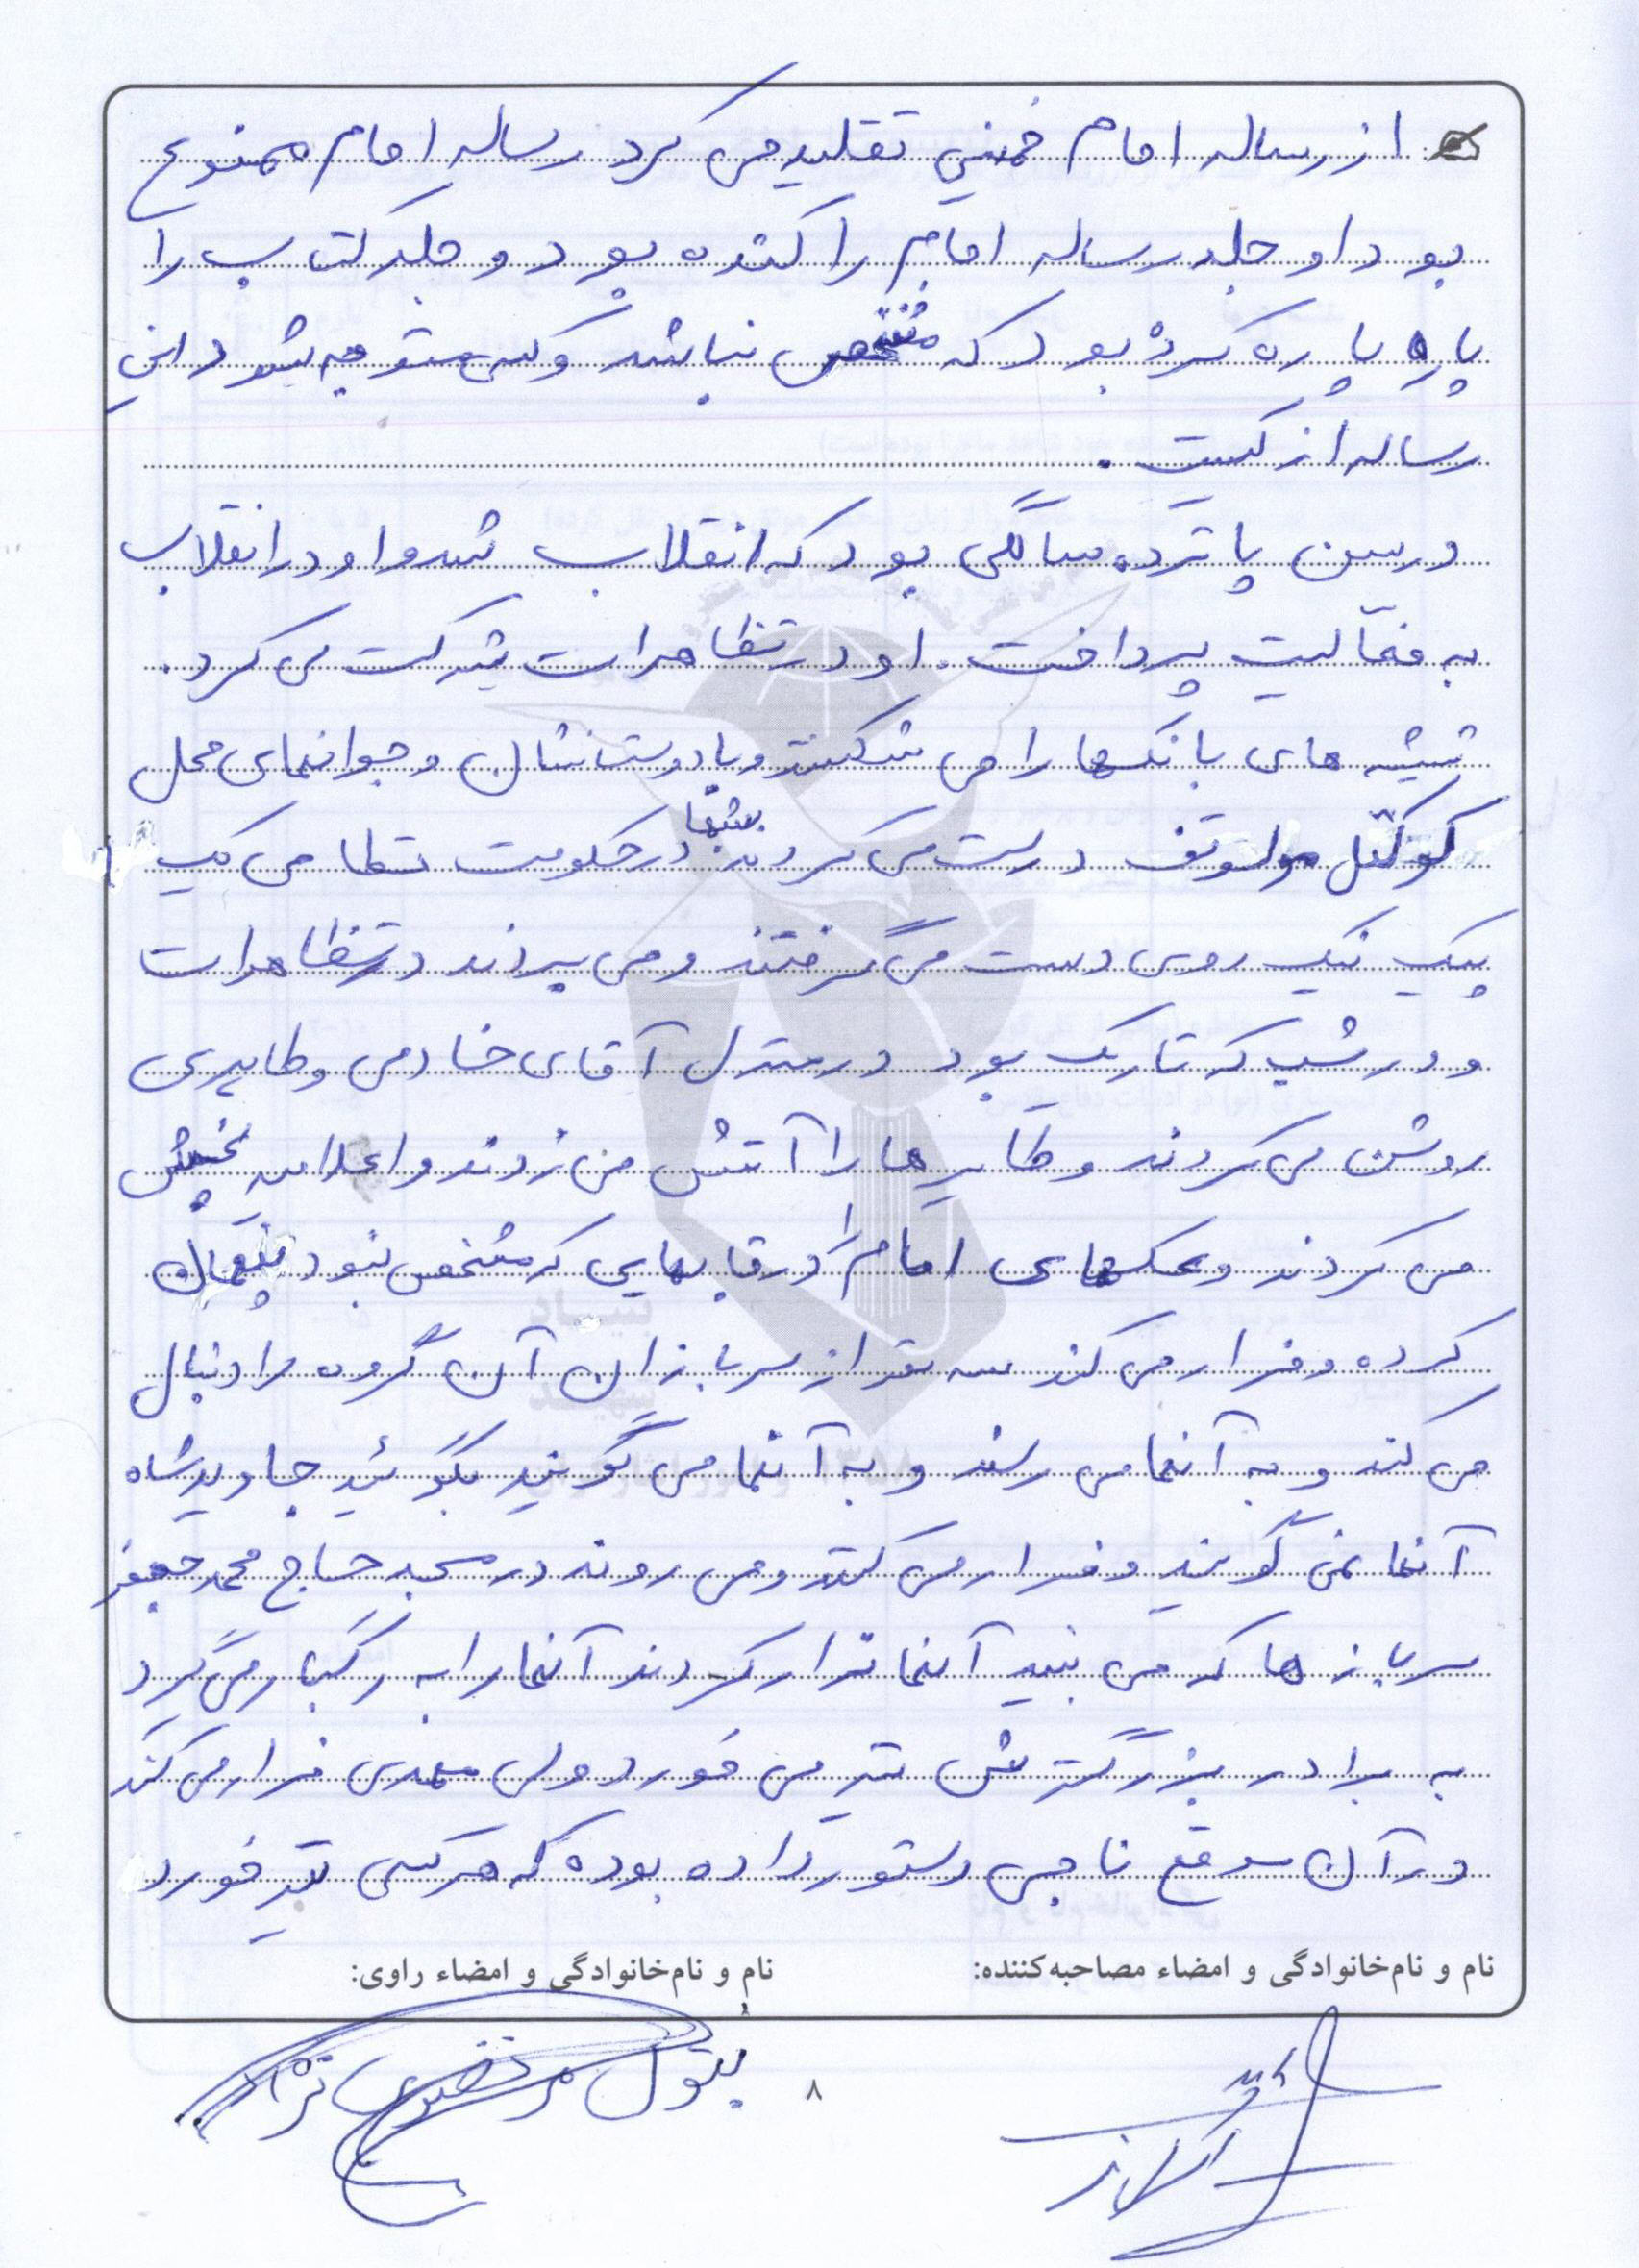 از رساله امام خمینی تقلید می کرد رساله امام ممنوع
بود او جلد رساله امام را کنده بود و جلد کتاب را
پاره پاره کرده بود که مشخص نباشد و کسی متوجه نشود این
رساله از کیست .
در سن پانزده سالگی بود که انقلاب شد و او در انقلاب
به فعالیت پرداخت . او در تظاهرات شرکت می کرد .
شیشه های بانکها را می شکستند و با دوستانشان و جوانهای محل
کوکتل مولوتف درست می کردند شبها در حکومت نظامی
پیک نیک روی دست می گرفتند و می بردند در تظاهرات
و در شب که تاریک بود در منزل آقای خادمی و طاهری
روشن می کردند و طایرها را آتش می زدند و اعلامیه پخش
می کردند و عکسهای امام را در قابهایی که مشخص نبود پنهان
کرده و فرار می کند سه نفر از سربازان آن گروه را دنبال
می کند و به آنها می رسند و به آنها می گویند بگوئید جاوید شاه
آنها نمی گویند و فرار می کنند و می روند در مسجد حاج محمد جعفر
سربازها که می بینند آنها فرار کردند آنها را به رگبار می گیرد
به برادر بزرگترش تیر می خورد ولی مهدی فرار می کند
در آن موقع ناجی دستور داده بوده که هر کسی تیر خورد
نام و نام‌خانوادگی و امضاء مصاحبه‌کننده:
نام و نام‌خانوادگی و امضاء راوی:
بتول
۸